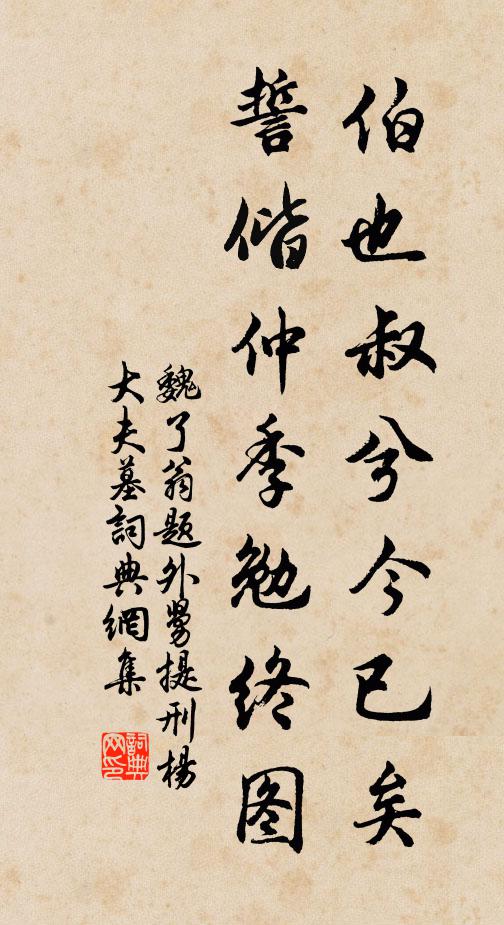 伯也叔兮今已矣
誓偕仲季勉终图
魏了翁题外舅提刑楊
大夫墓詞典網集
詞典
网印